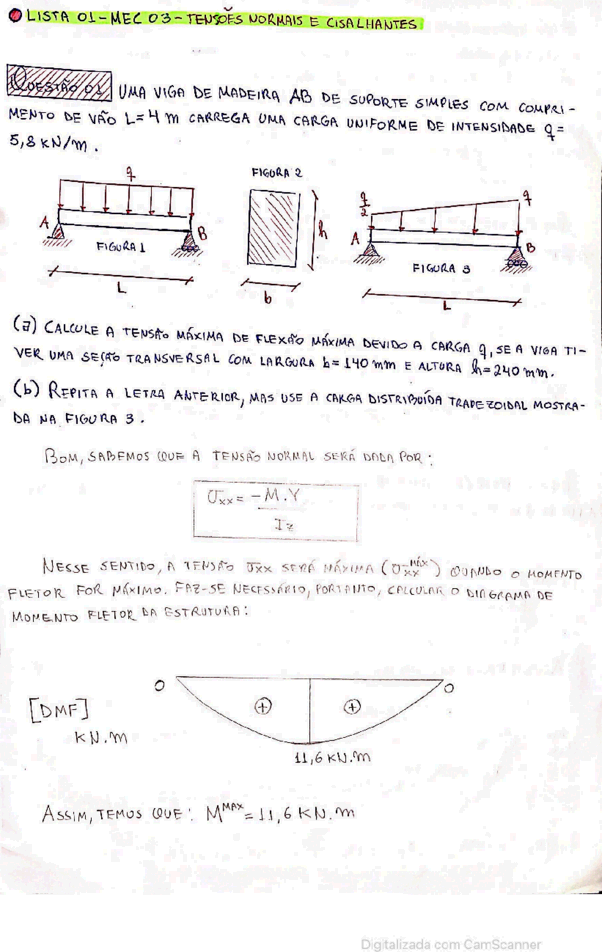 LISTA 01-MEC 03-TENSÕES NORMAIS E CISALHANTES
QUESTÃO 01 UMA VIGA DE MADEIRA AB DE SUPORTE SIMPLES COM COMPRI-
MENTO DE VÃO L=4 m CARREGA UMA CARGA UNIFORME DE INTENSIDADE q=
5,8 KN/m.
q
A
B
FIGURA 1
L
FIGURA 2
h
b
q/2
q
A
B
FIGURA 3
L
(a) CALCULE A TENSÃO MÁXIMA DE FLEXÃO MÁXIMA DEVIDO A CARGA q, SE A VIGA TI-
VER UMA SEÇÃO TRANSVERSAL COM LARGURA b=140 mm E ALTURA h=240 mm.
(b) REPITA A LETRA ANTERIOR, MAS USE A CARGA DISTRIBUÍDA TRAPEZOIDAL MOSTRA-
DA NA FIGURA 3.
BOM, SABEMOS QUE A TENSÃO NORMAL SERÁ DADA POR:
σxx = -M.Y / Iz
NESSE SENTIDO, A TENSÃO σxx SERÁ MÁXIMA (σxx^MÁX) QUANDO O MOMENTO
FLETOR FOR MÁXIMO. FAZ-SE NECESSÁRIO, PORTANTO, CALCULAR O DIAGRAMA DE
MOMENTO FLETOR DA ESTRUTURA:
0
0
[DMF]
KN.m
+
+
11,6 KN.m
ASSIM, TEMOS QUE: M^MAX = 11,6 KN.m
Digitalizada com CamScanner